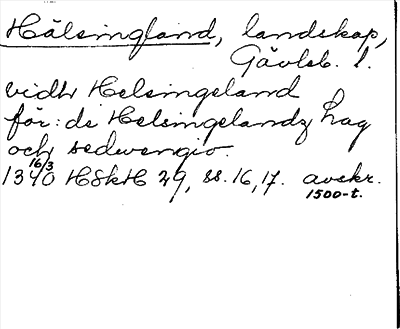 Hälsingland, landskap,
Gävleb. l.
vidh Helsingeland
för: de Helsingelandz hag
och sedwengio.
16/3
1340 HSkH 29, ss. 16, 17. avskr.
1500-t.